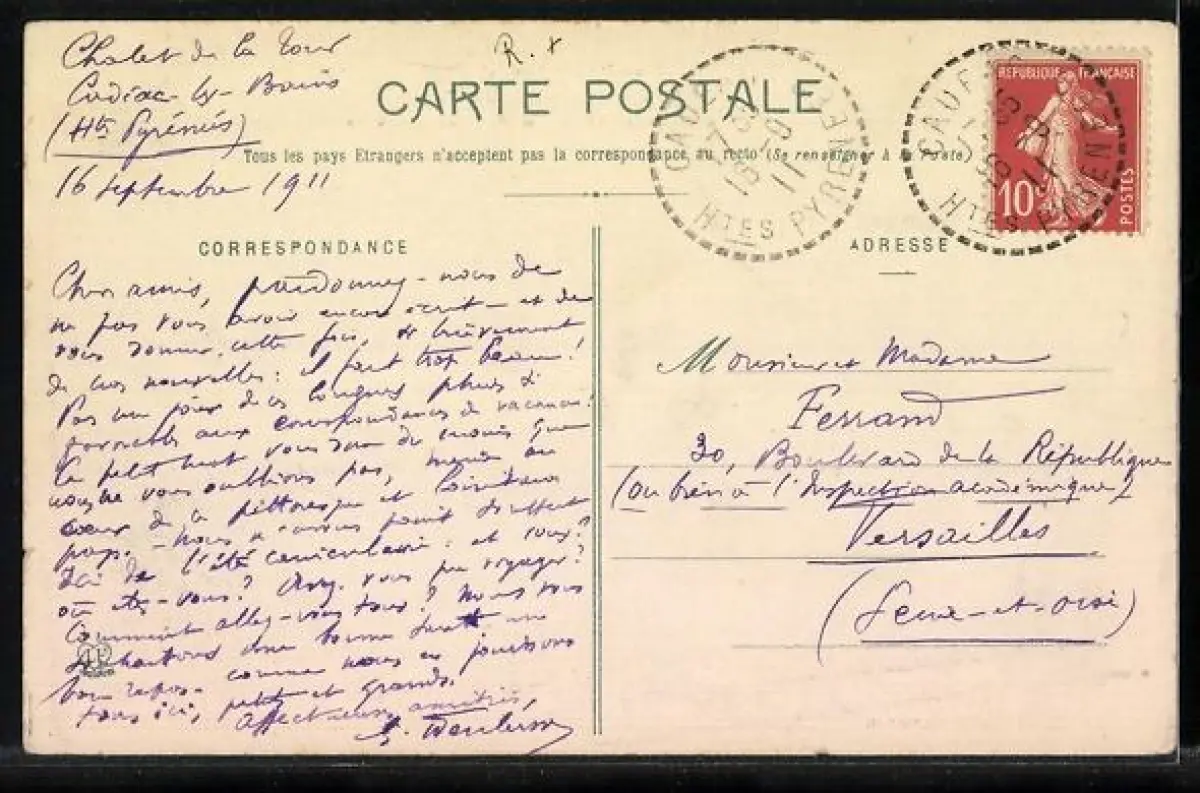 Chalet de la Tour
Cadéac-les-Bains
(Htes Pyrénées)
16 septembre 1911
R. x
CARTE POSTALE
Tous les pays Etrangers n'acceptent pas la correspondance au recto (Se renseigner à la Poste)
REPUBLIQUE FRANÇAISE
10c
POSTES
HTES PYRENEES
CORRESPONDANCE
ADRESSE
Chers amis, pardonnez-nous de
ne pas vous avoir encore écrit — et de
vous donner, cette fois, si brièvement
de nos nouvelles : il fait trop beau !
Pas un jour de ces longues pluies si
favorables aux correspondances de vacances !
Ce petit mot vous dira du moins que
nous ne vous oublions pas, même au
cœur de ce pittoresque et lointain
pays. - Nous n'avons point souffert
ici de l'été caniculaire : et vous ?
où êtes-vous ? Avez-vous pu voyager ?
Comment allez-vous tous ? Nous vous
souhaitons une bonne santé un
bon repos - comme nous en jouissons
tous ici, petits et grands.
Affectueuses amitiés,
Monsieur et Madame
Ferrand
30, Boulevard de la République
(ou bien à l'Inspection académique)
Versailles
(Seine-et-Oise)